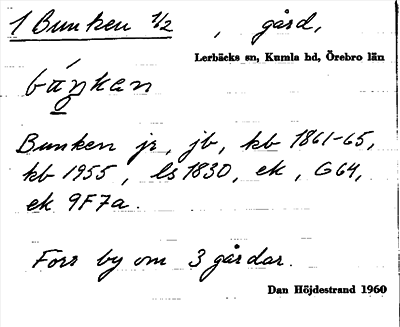 1 Bunken 1/2 , gård,
Lerbäcks sn, Kumla hd, Örebro län
Bunken jr, jb, kb 1861-65,
kb 1955, ls 1830, ek, G64,
ek 9F7a.
Förr by om 3 gårdar.
Dan Höjdestrand 1960